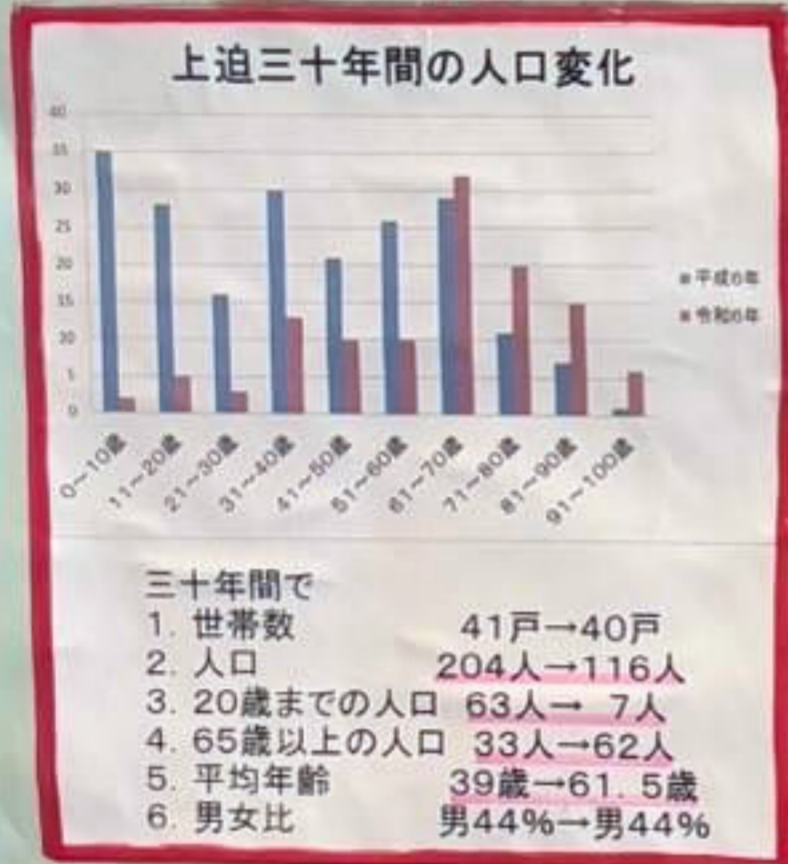 上迫三十年間の人口変化
40
35
30
25
20
15
10
5
0
0～10歳
11～20歳
21～30歳
31～40歳
41～50歳
51～60歳
61～70歳
71～80歳
81～90歳
91～100歳
平成6年
令和6年
三十年間で
1. 世帯数 41戸→40戸
2. 人口 204人→116人
3. 20歳までの人口 63人→ 7人
4. 65歳以上の人口 33人→62人
5. 平均年齢 39歳→61. 5歳
6. 男女比 男44%→男44%